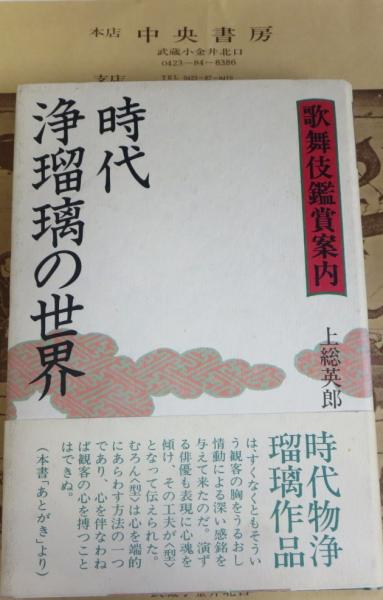 本店 中央書房
武蔵小金井北口
0423-84-8386
支店
歌舞伎鑑賞案内
時代
浄瑠璃の世界
上総英郎
時代物浄
瑠璃作品
は、すくなくともそうい
う観客の胸をうるおし
情動による深い感銘を
与えて来たのだ。演ず
る俳優も表現に心魂を
傾け、その工夫が〈型〉
となって伝えられた。
むろん〈型〉は心を端的
にあらわす方法の一つ
であり、心を伴なわね
ば観客の心を搏つこと
はできぬ。
(本書「あとがき」より)
武蔵小金井北口